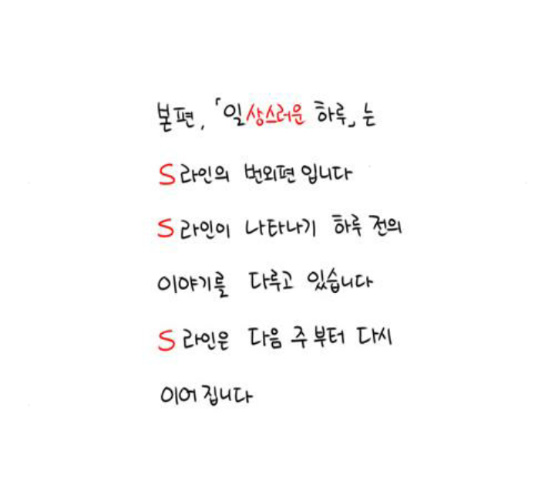 본편, 「일상스러운 하루」는
S라인의 번외편입니다
S라인이 나타나기 하루 전의
이야기를 다루고 있습니다
S라인은 다음 주부터 다시
이어집니다